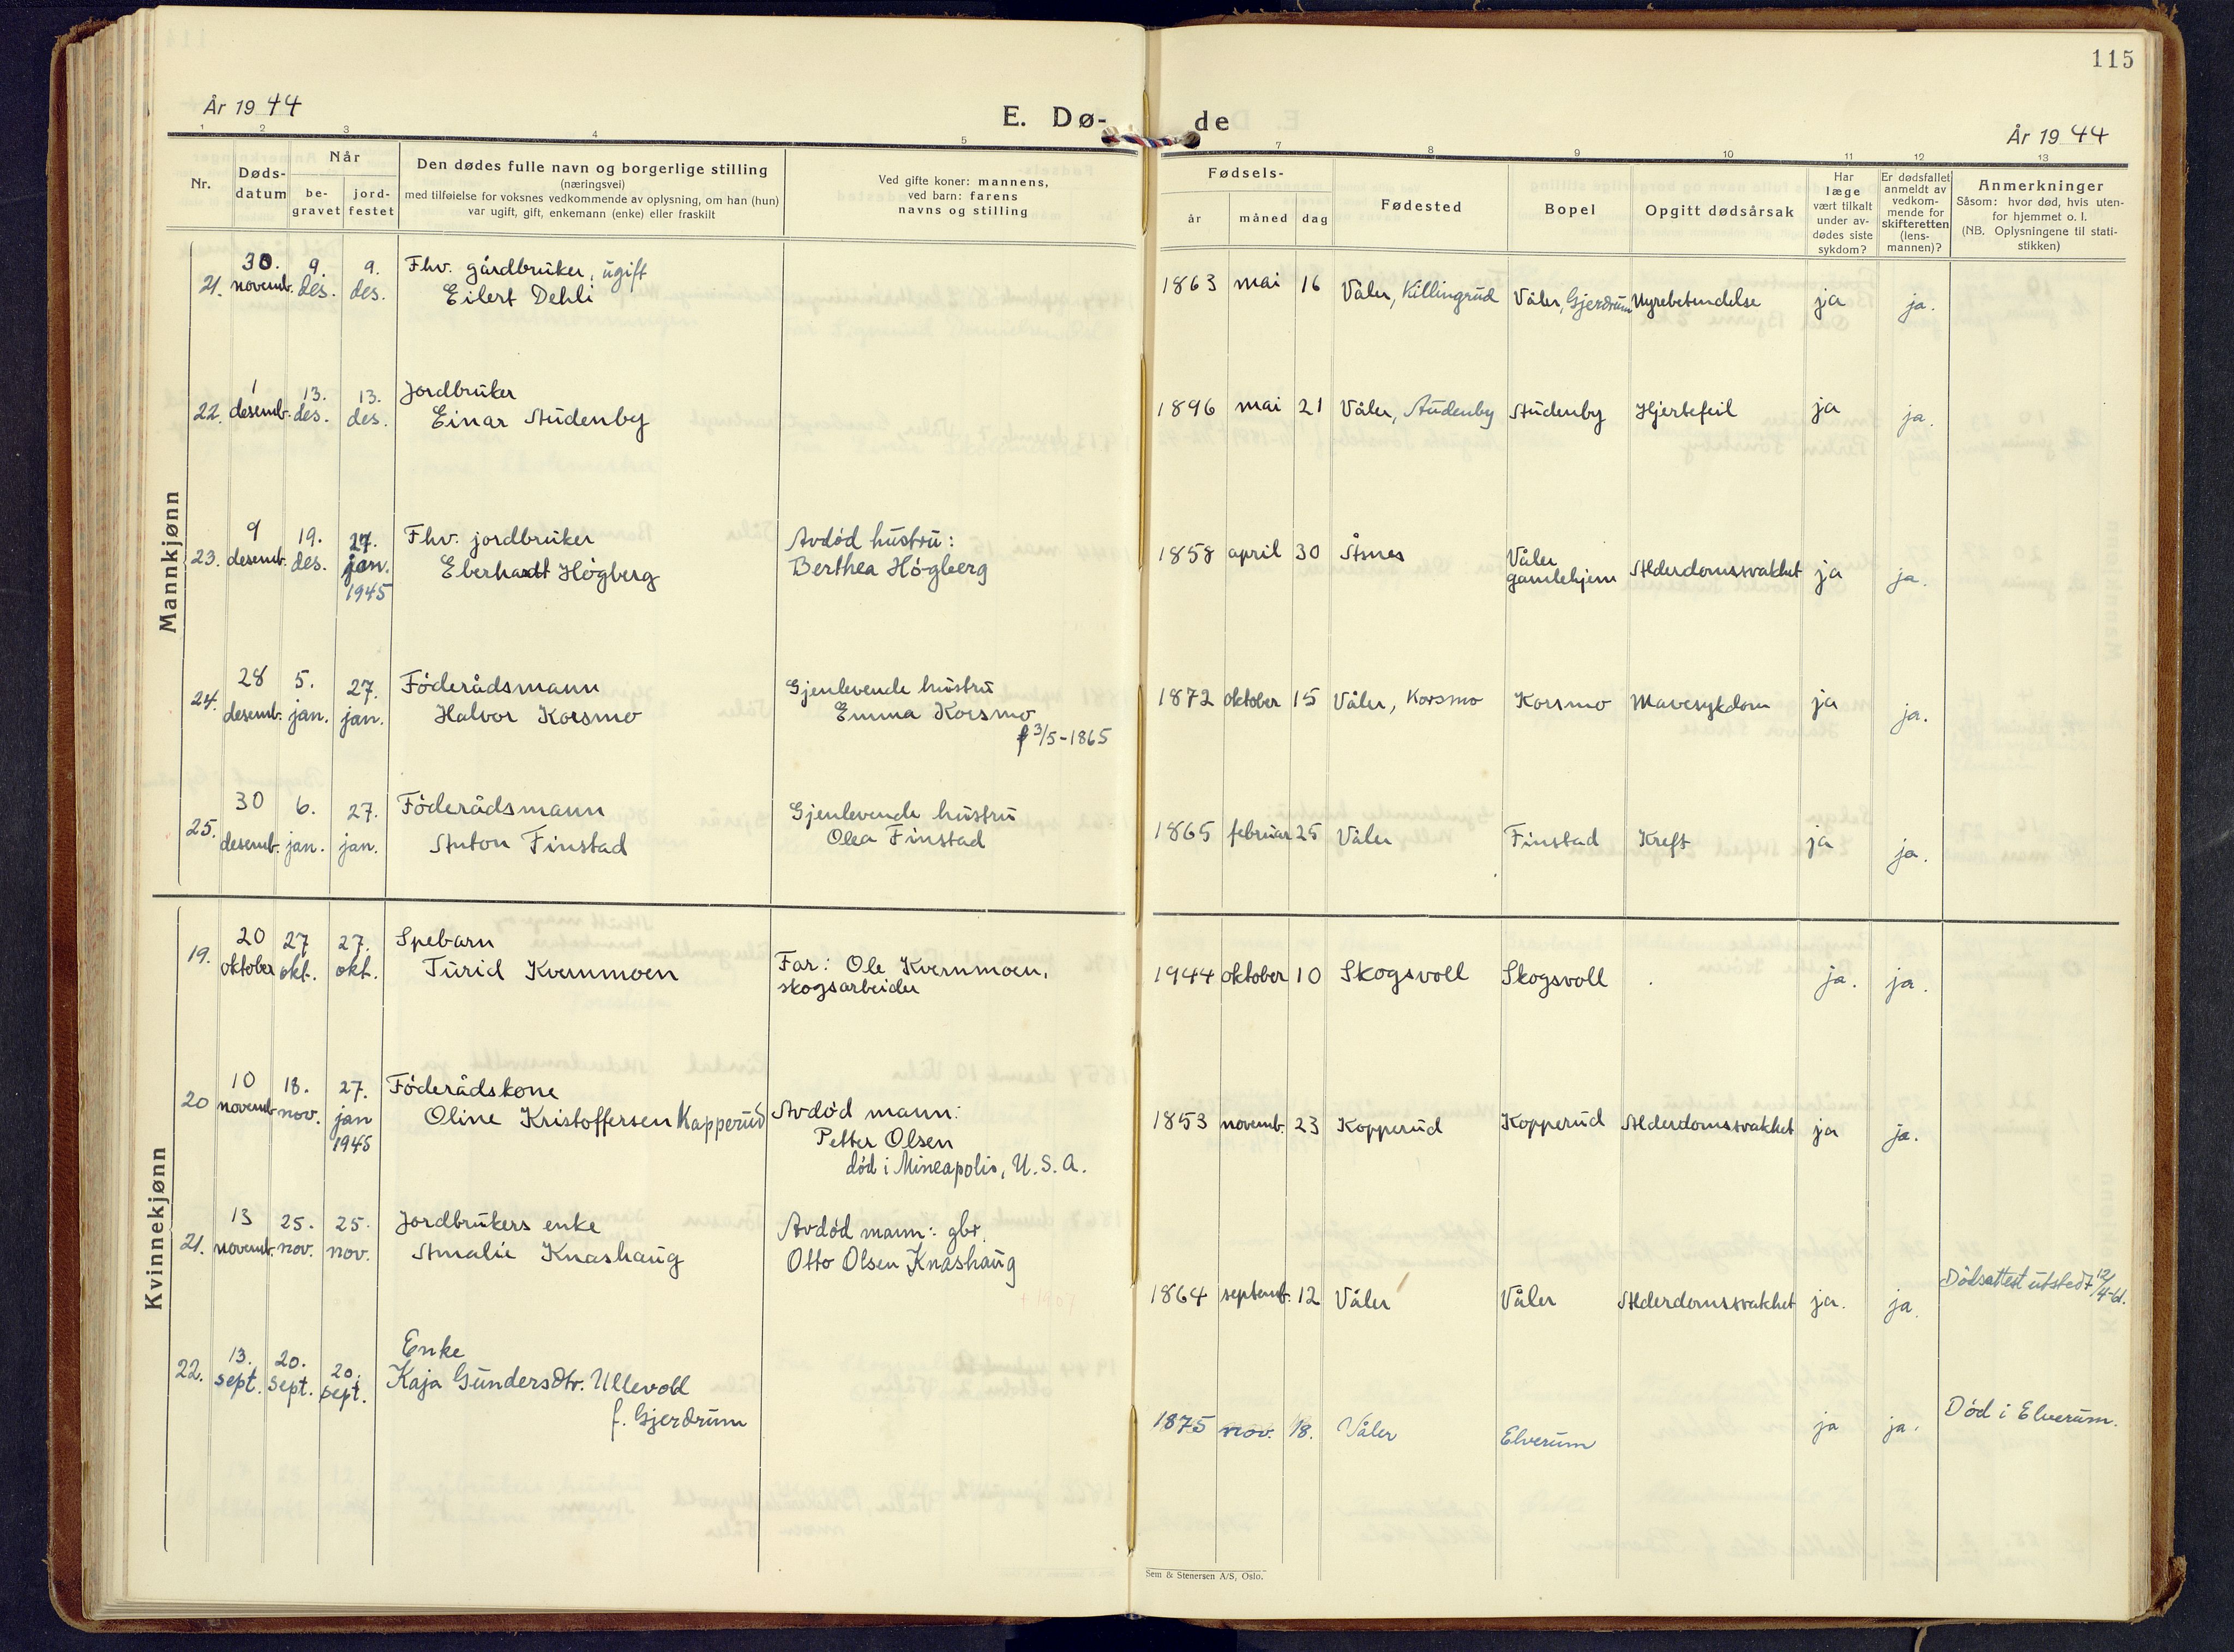 115
År 1944
E. Dø-
de
År 1944
1 2 3 4 5
7 8 9 10 11 12 13
Nr.
Døds-
datum
Når
be-
gravet
jord-
festet
Den dødes fulle navn og borgerlige stilling
(næringsvei)
med tilføielse for voksnes vedkommende av oplysning, om han (hun)
var ugift, gift, enkemann (enke) eller fraskilt
Ved gifte koner: mannens,
ved barn: farens
navns og stilling
Fødsels-
år måned dag
Fødested
Bopel
Opgitt dødsårsak
Har
læge
vært tilkalt
under av-
dødes siste
sykdom?
Er dødsfallet
anmeldt av
vedkom-
mende for
skifteretten
(lens-
mannen)?
Anmerkninger
Såsom: hvor død, hvis uten-
for hjemmet o. l.
(NB. Oplysningene til stati-
stikken)
Mannkjønn
21.
30.
novemb.
9.
des.
9.
des.
Fhv. gårdbruker, ugift
Eilert Dehli
1863 mai 16 Våler, Killingrud Våler, Gjerdrum Nyrebetendelse ja ja.
22.
1
desemb.
13.
des.
13.
des.
Jordbruker
Einar Studenby
1896 mai 21 Våler, Studenby Studenby Hjertefeil ja ja.
23.
9
desemb.
19.
des.
27.
jan.
1945
Fhv. jordbruker
Eberhardt Högberg
Avdöd hustru:
Berthea Högberg
1858 april 30 Åsnes
Våler
gamlehjem
Alderdomssvakhet ja ja.
24.
28
desemb.
5.
jan.
27.
jan.
Föderådsmann
Halvor Korsmo
Gjenlevende hustru
Emma Korsmo
f 3/5-1865
1872 oktober 15 Våler, Korsmo Korsmo Mavesykdom ja ja.
25.
30
desemb.
6.
jan.
27.
jan.
Föderådsmann
Anton Finstad
Gjenlevende hustru
Olea Finstad
1865 februar 25 Våler Finstad Kreft ja ja.
Kvinnekjønn
19.
20
oktober
27
okt.
27.
okt.
Spebarn
Turid Kvernmoen
Far: Ole Kvernmoen,
skogsarbeider
1944 oktober 10 Skogsvoll Skogsvoll ja. ja.
20
10
novemb.
18.
nov.
27.
jan
1945
Föderådskone
Oline Kristoffersen Kapperud
Avdöd mann:
Petter Olsen
död i Mineapolis, U.S.A.
1853 novemb. 23 Kopperud Kopperud Alderdomssvakhet ja ja.
21.
13
novemb.
25.
nov.
25.
nov.
Jordbrukers enke
Amalie Knashaug
Avdöd mann: gbr.
Otto Olsen Knashaug
+ 1907
1864 septemb. 12 Våler Våler Alderdomssvakhet ja. ja.
Dödsattest utstedt 12/4-61.
22.
13.
sept.
20.
sept.
20.
sept.
Enke
Kaja Gundersdtr. Ullevold
f. Gjerdrum
1875 nov. 18. Våler Elverum ja ja.
Död i Elverum.
Sem & Stenersen A/S, Oslo.